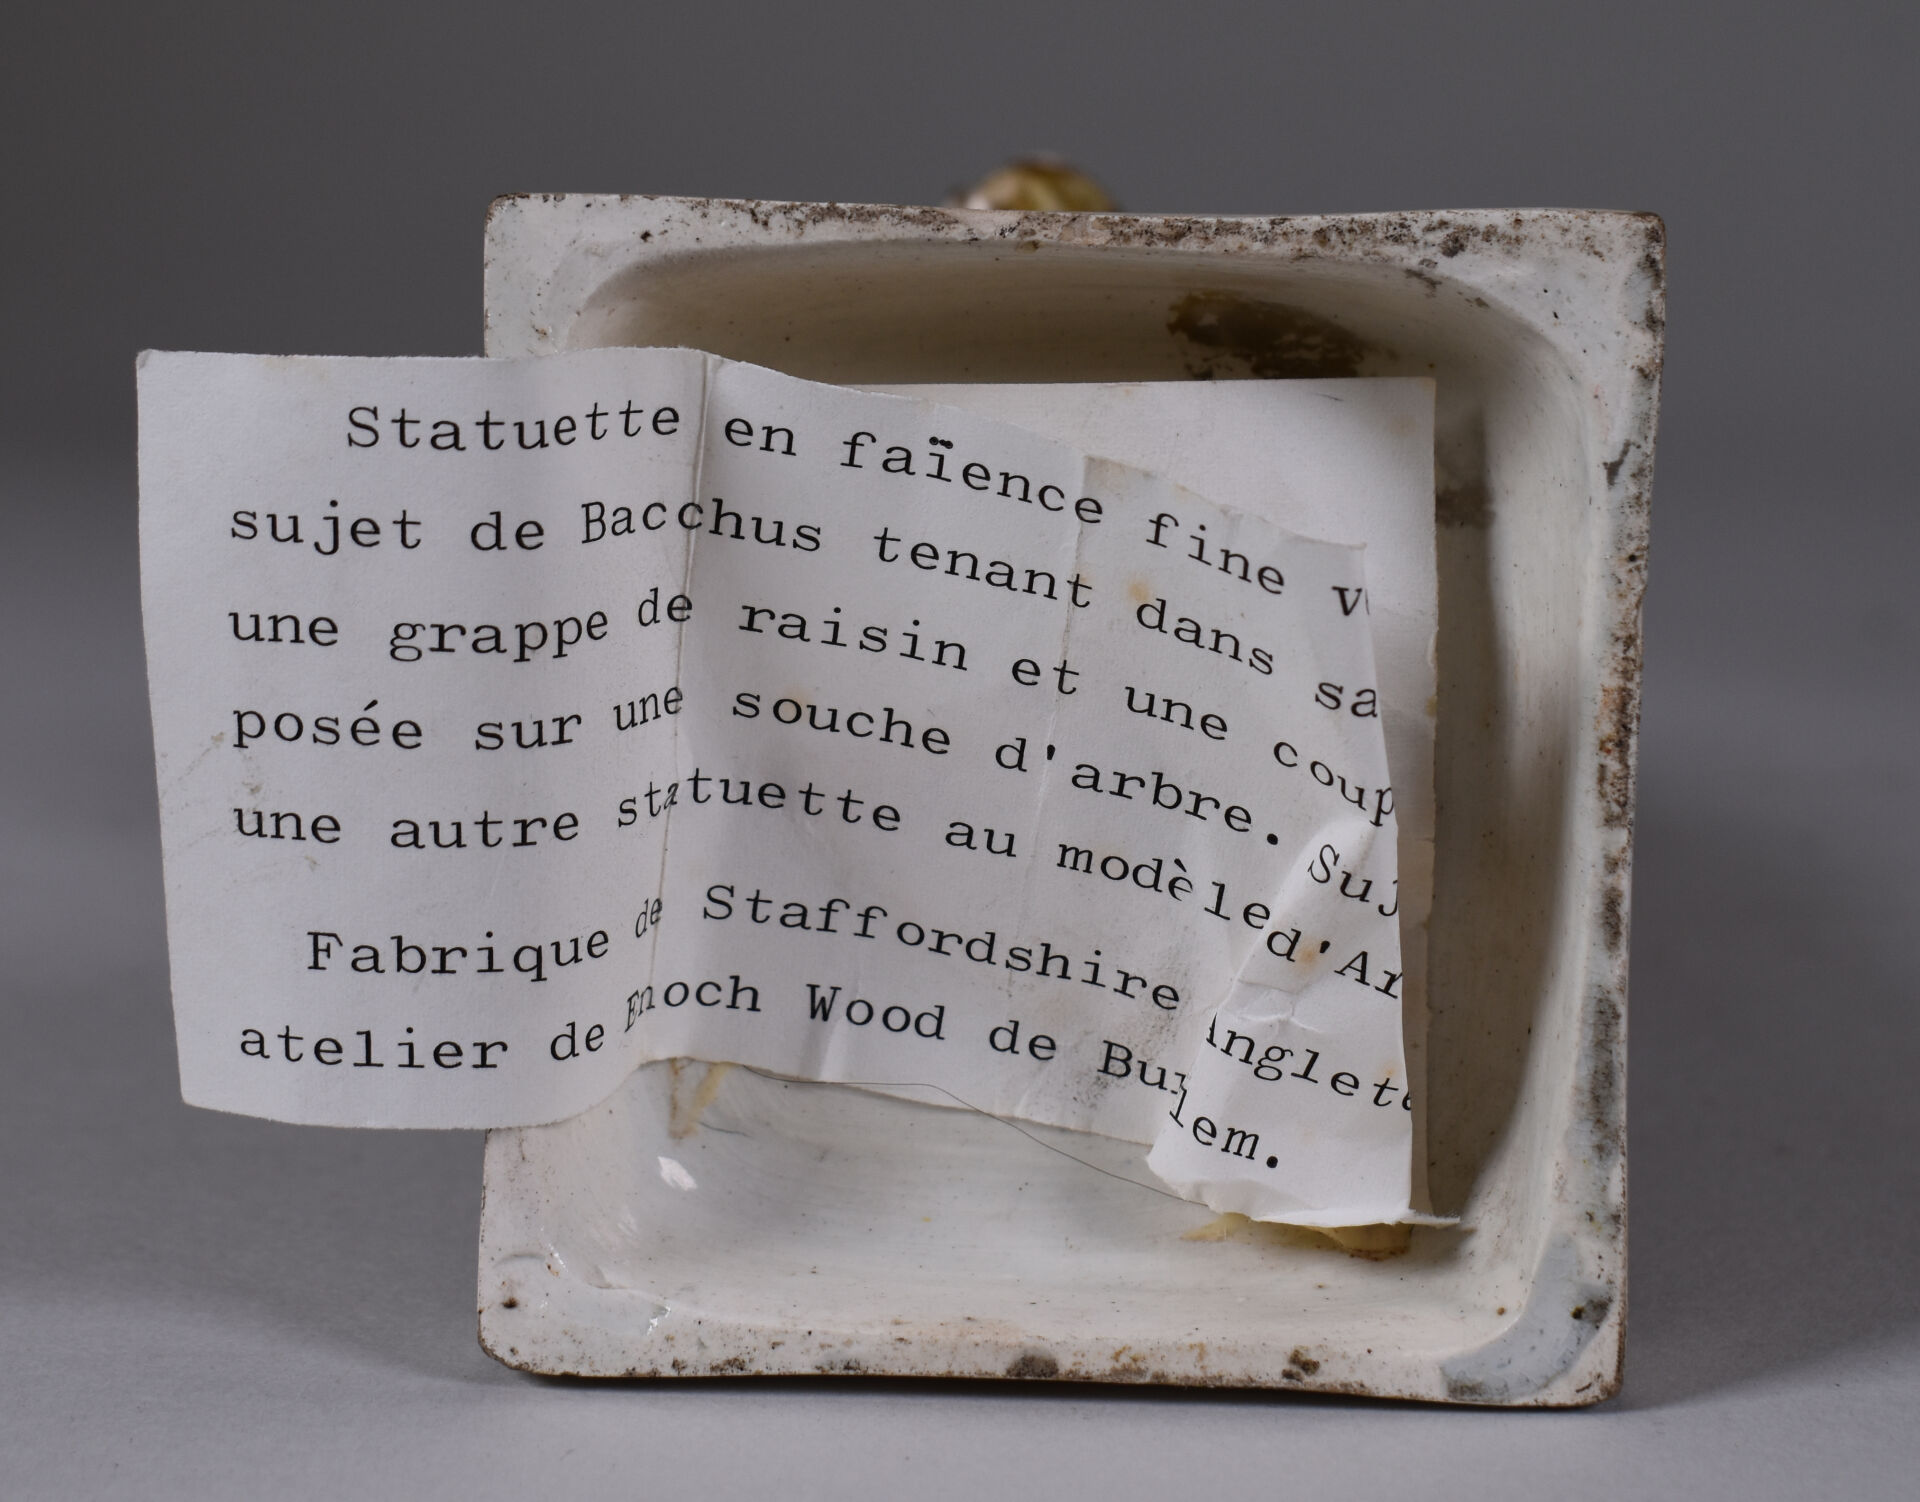 Statuette en faïence fine
sujet de Bacchus tenant dans sa
une grappe de raisin et une coup
posée sur une souche d'arbre. Suj
une autre statuette au modèle d'Ar
Fabrique de Staffordshire Anglet
atelier de Enoch Wood de Burlem.